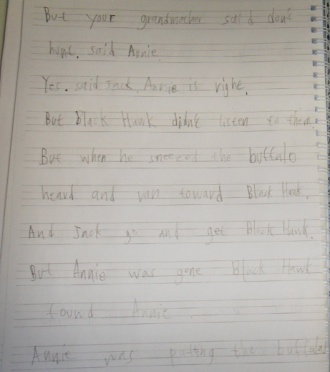 But your grandmother said don't
hunt. said Annie.
Yes. said Jack Annie is right.
But black Hawk didn't listen to them.
But when he sneezed the buffalo
heard and ran toward Black Hawk.
And Jack go and get Black Hawk.
But Annie was gone Black Hawk
found Annie.
Annie was petting the buffalo